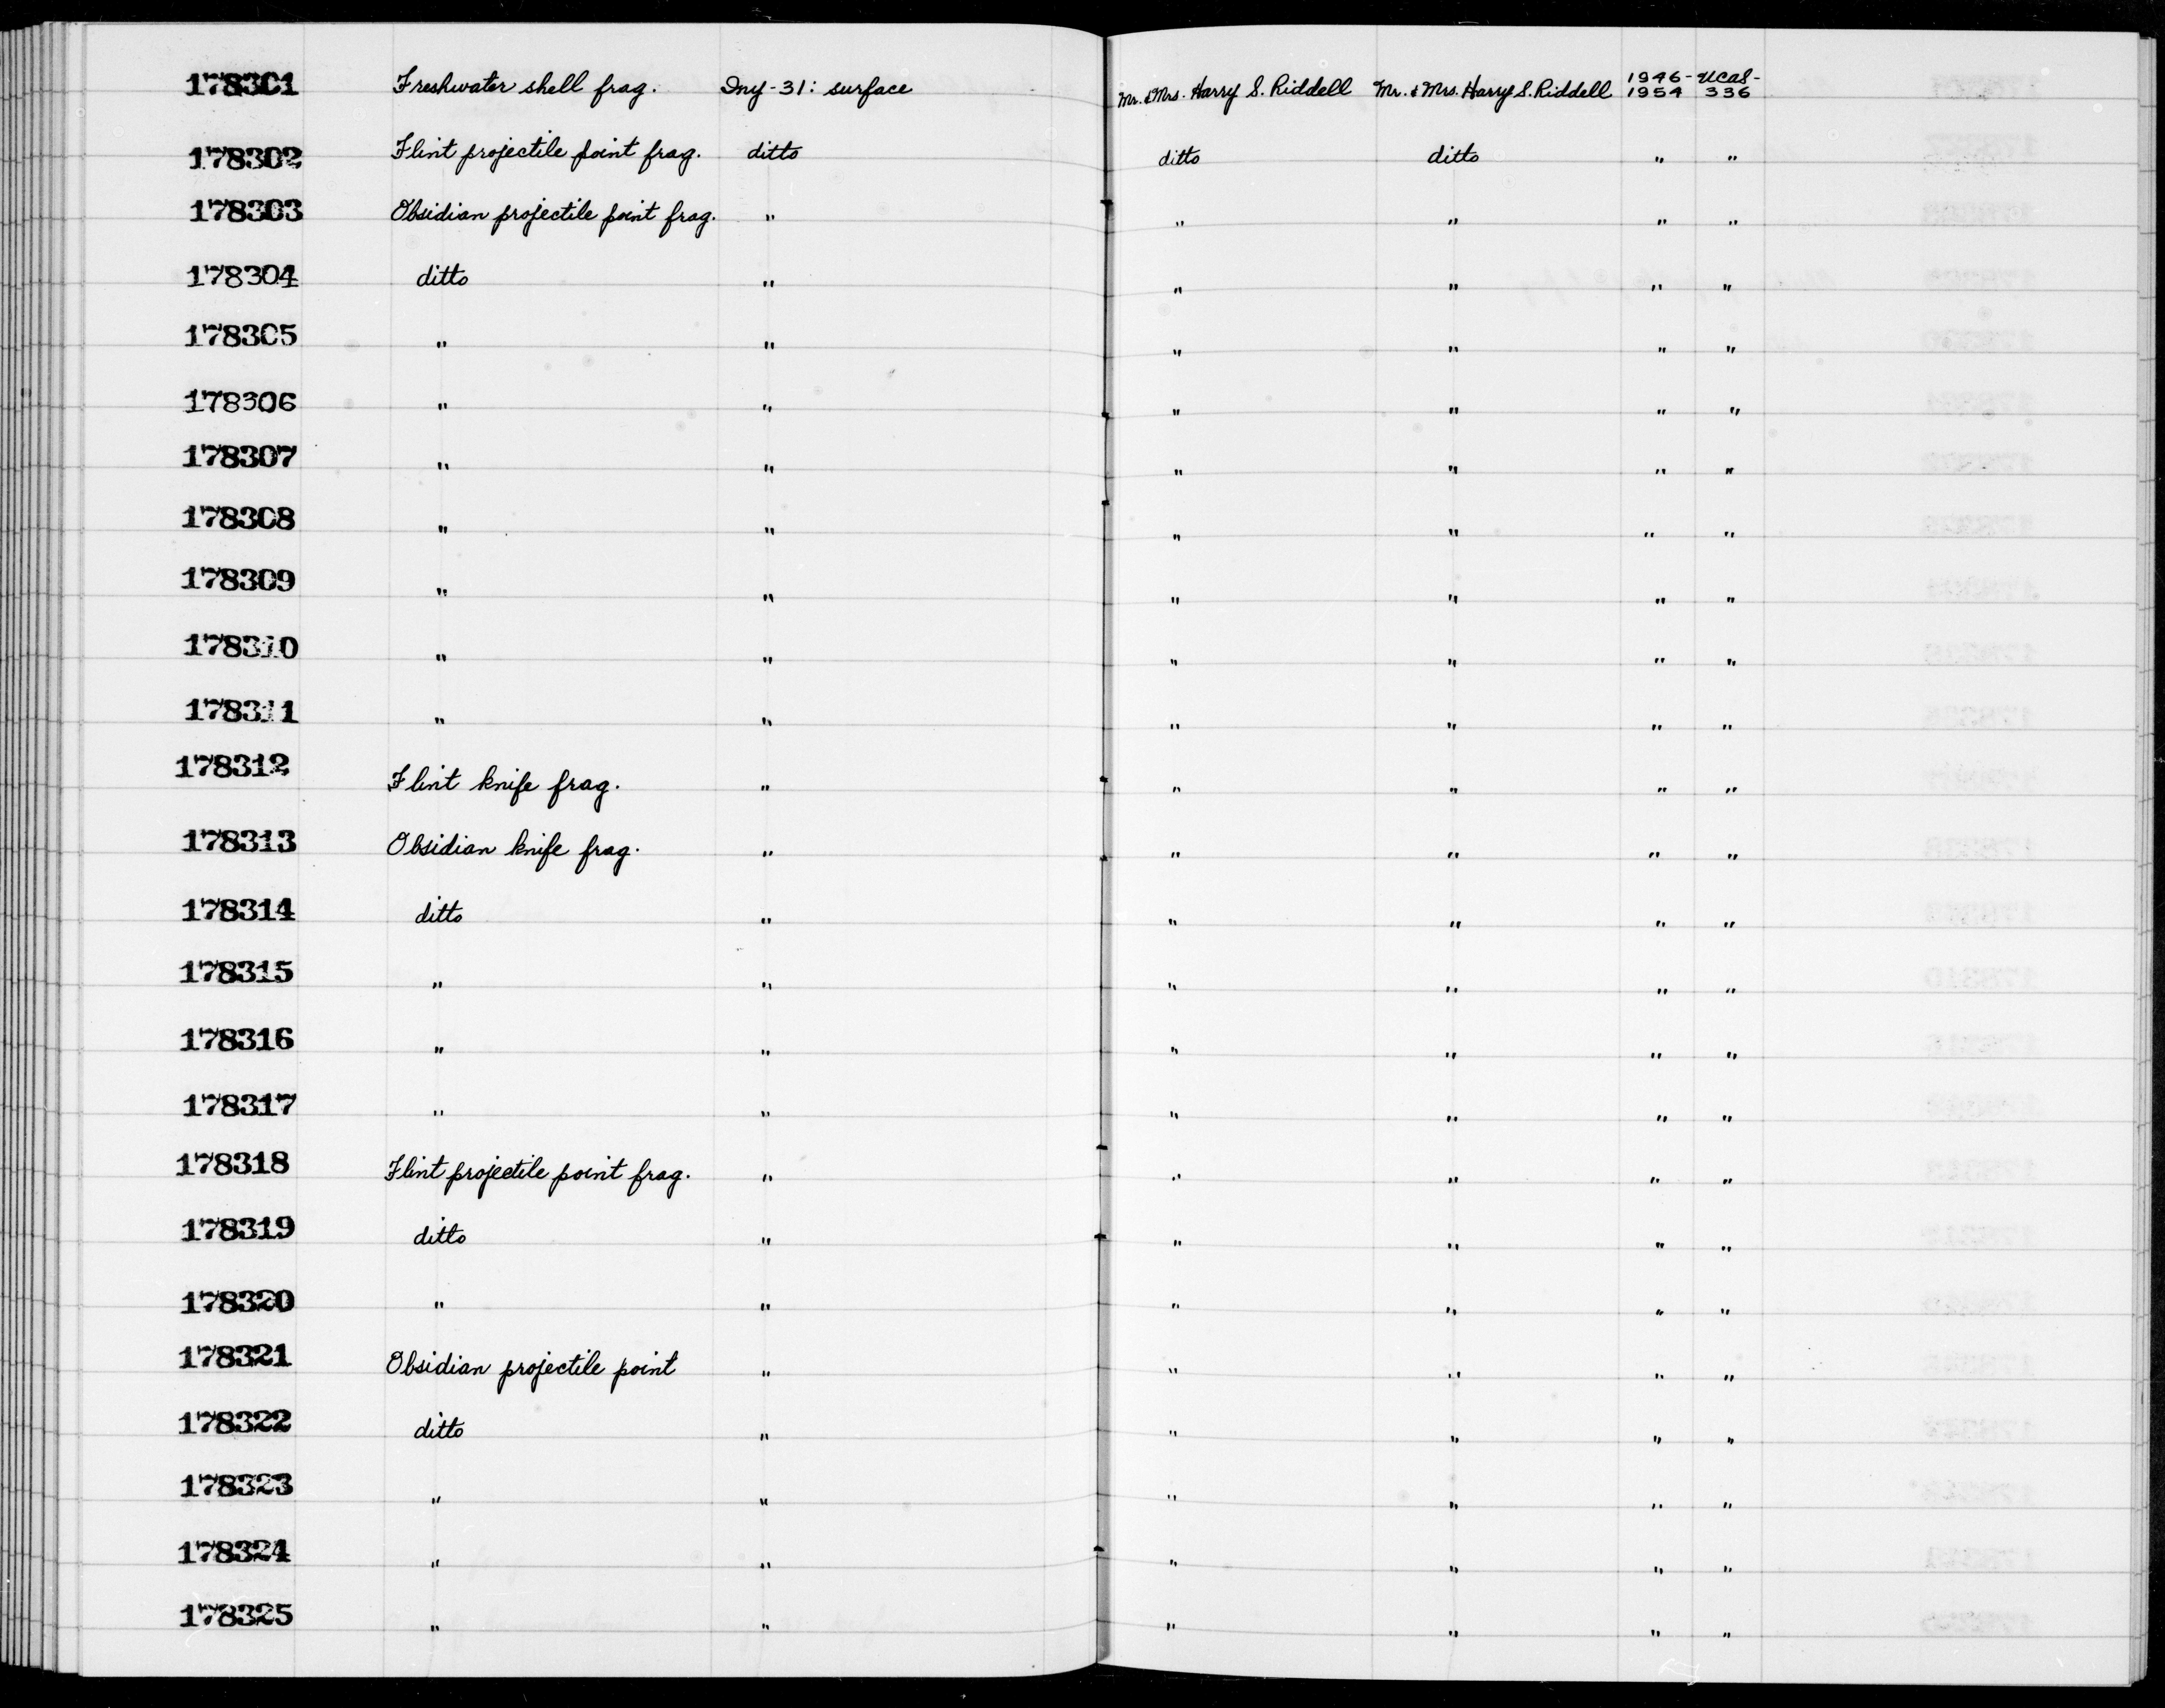 178301 Freshwater shell frag. Iny-31: surface Mr. & Mrs. Harry S. Riddell Mr. & Mrs. Harry S. Riddell 1946-1954 UCAS-336
178302 Flint projectile point frag. ditto ditto ditto " "
178303 Obsidian projectile point frag. " " " " "
178304 ditto " " " " "
178305 " " " " " "
178306 " " " " " "
178307 " " " " " "
178308 " " " " " "
178309 " " " " " "
178310 " " " " " "
178311 " " " " " "
178312 Flint knife frag. " " " " "
178313 Obsidian knife frag. " " " " "
178314 ditto " " " " "
178315 " " " " " "
178316 " " " " " "
178317 " " " " " "
178318 Flint projectile point frag. " " " " "
178319 ditto " " " " "
178320 " " " " " "
178321 Obsidian projectile point " " " " "
178322 ditto " " " " "
178323 " " " " " "
178324 " " " " " "
178325 " " " " " "